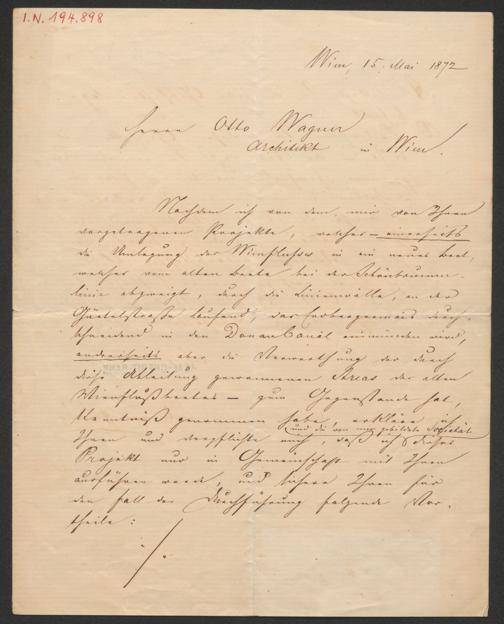 I.N. 194.898
Wien, 15. Mai 1872
Herrn Otto Wagner
Architekt in Wien.
Nachdem ich von dem, mir von Ihnen
vorgetragenen Projekte, welches – einerseits
die Umlegung des Wienflusses in ein neues Bett,
welches vom alten Bette bei der Schönbrunner-
linie abzweigt, durch die Linienwälle, an der
Gürtelstraße laufend, das Erdbergermais durch-
schneidend in den Donau Canal einmünden wird,
anderseits aber die Verwerthung der durch
diese Ableitung gewonnenen Areas des alten
Wienflußbettes – zum Gegenstande hat,
Kenntniß genommen habe, erkläre ich
Ihnen und verpflichte mich, daß ich dieses
und die von mir gebildete Societät
Projekt nur in Gemeinschaft mit Ihnen
ausführen werde, und sichere Ihnen für
den Fall der Durchführung folgende Vor-
theile: